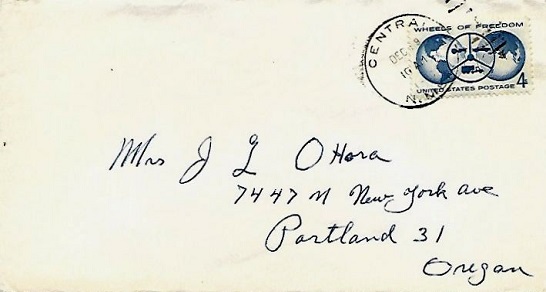 WHEELS OF FREEDOM
CENTRAL
DEC
N.M.
4¢
UNITED STATES POSTAGE
Mrs J L OHara
7447 N New York ave
Portland 31
Oregan